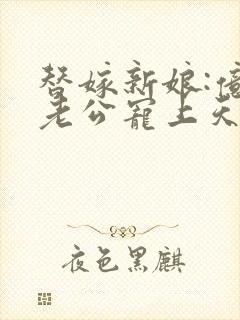 替嫁新娘:億
老公寵上天
夜色黑麒